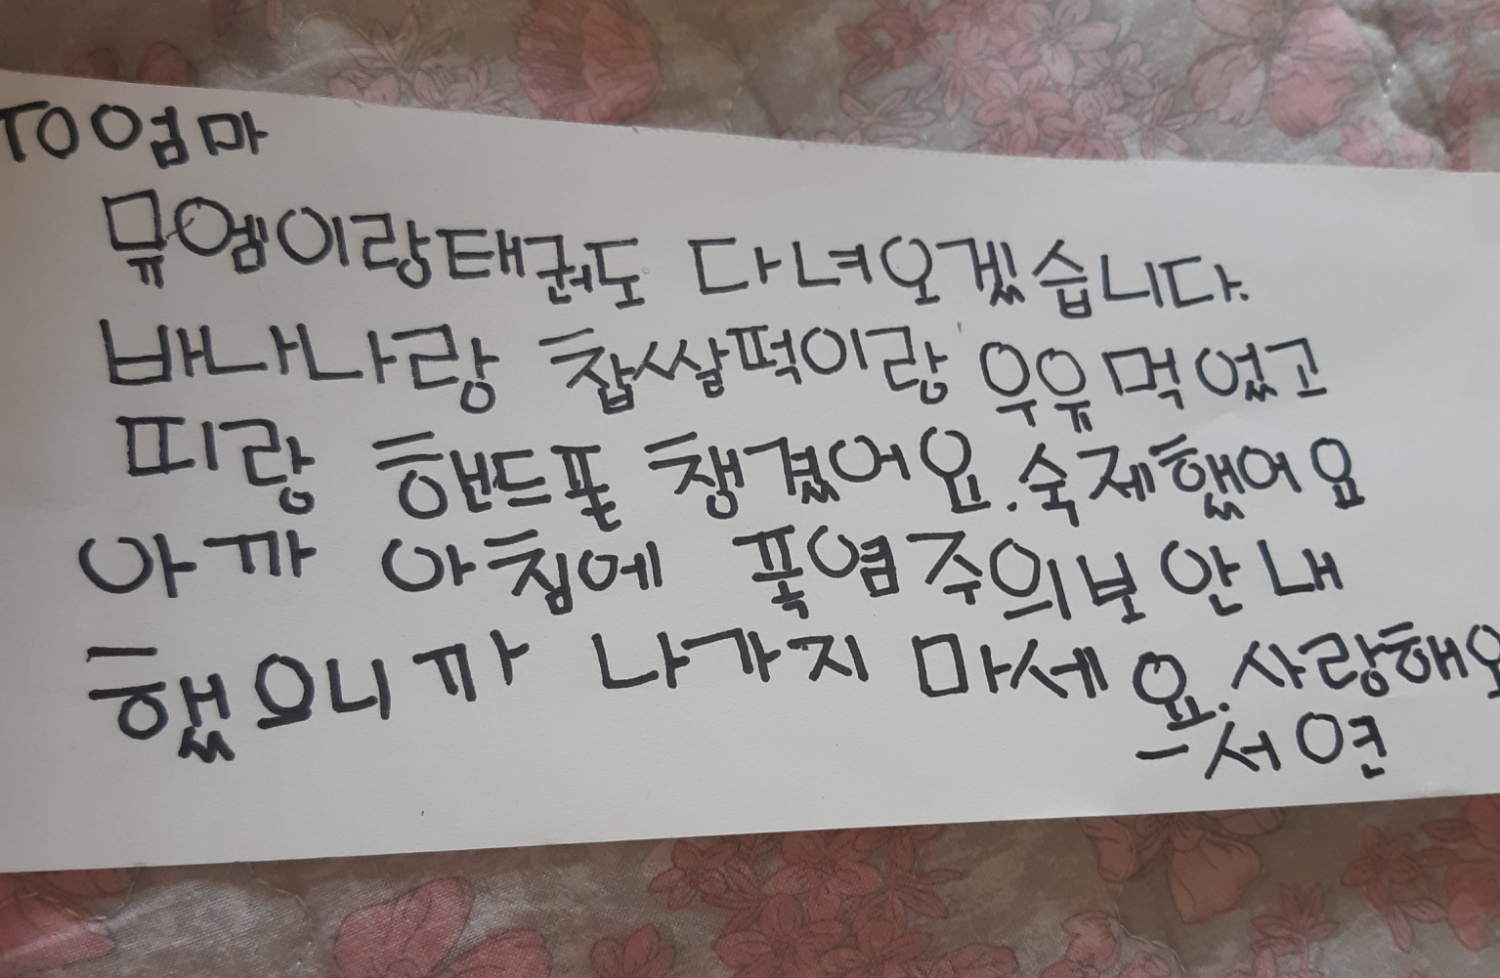 TO 엄마
뮤엠이랑태권도 다녀오겠습니다.
바나나랑 찹쌀떡이랑 우유 먹었고
띠랑 핸드폰 챙겼어요. 숙제했어요
아까 아침에 폭염주의보 안내
했으니까 나가지 마세요. 사랑해요
-서연